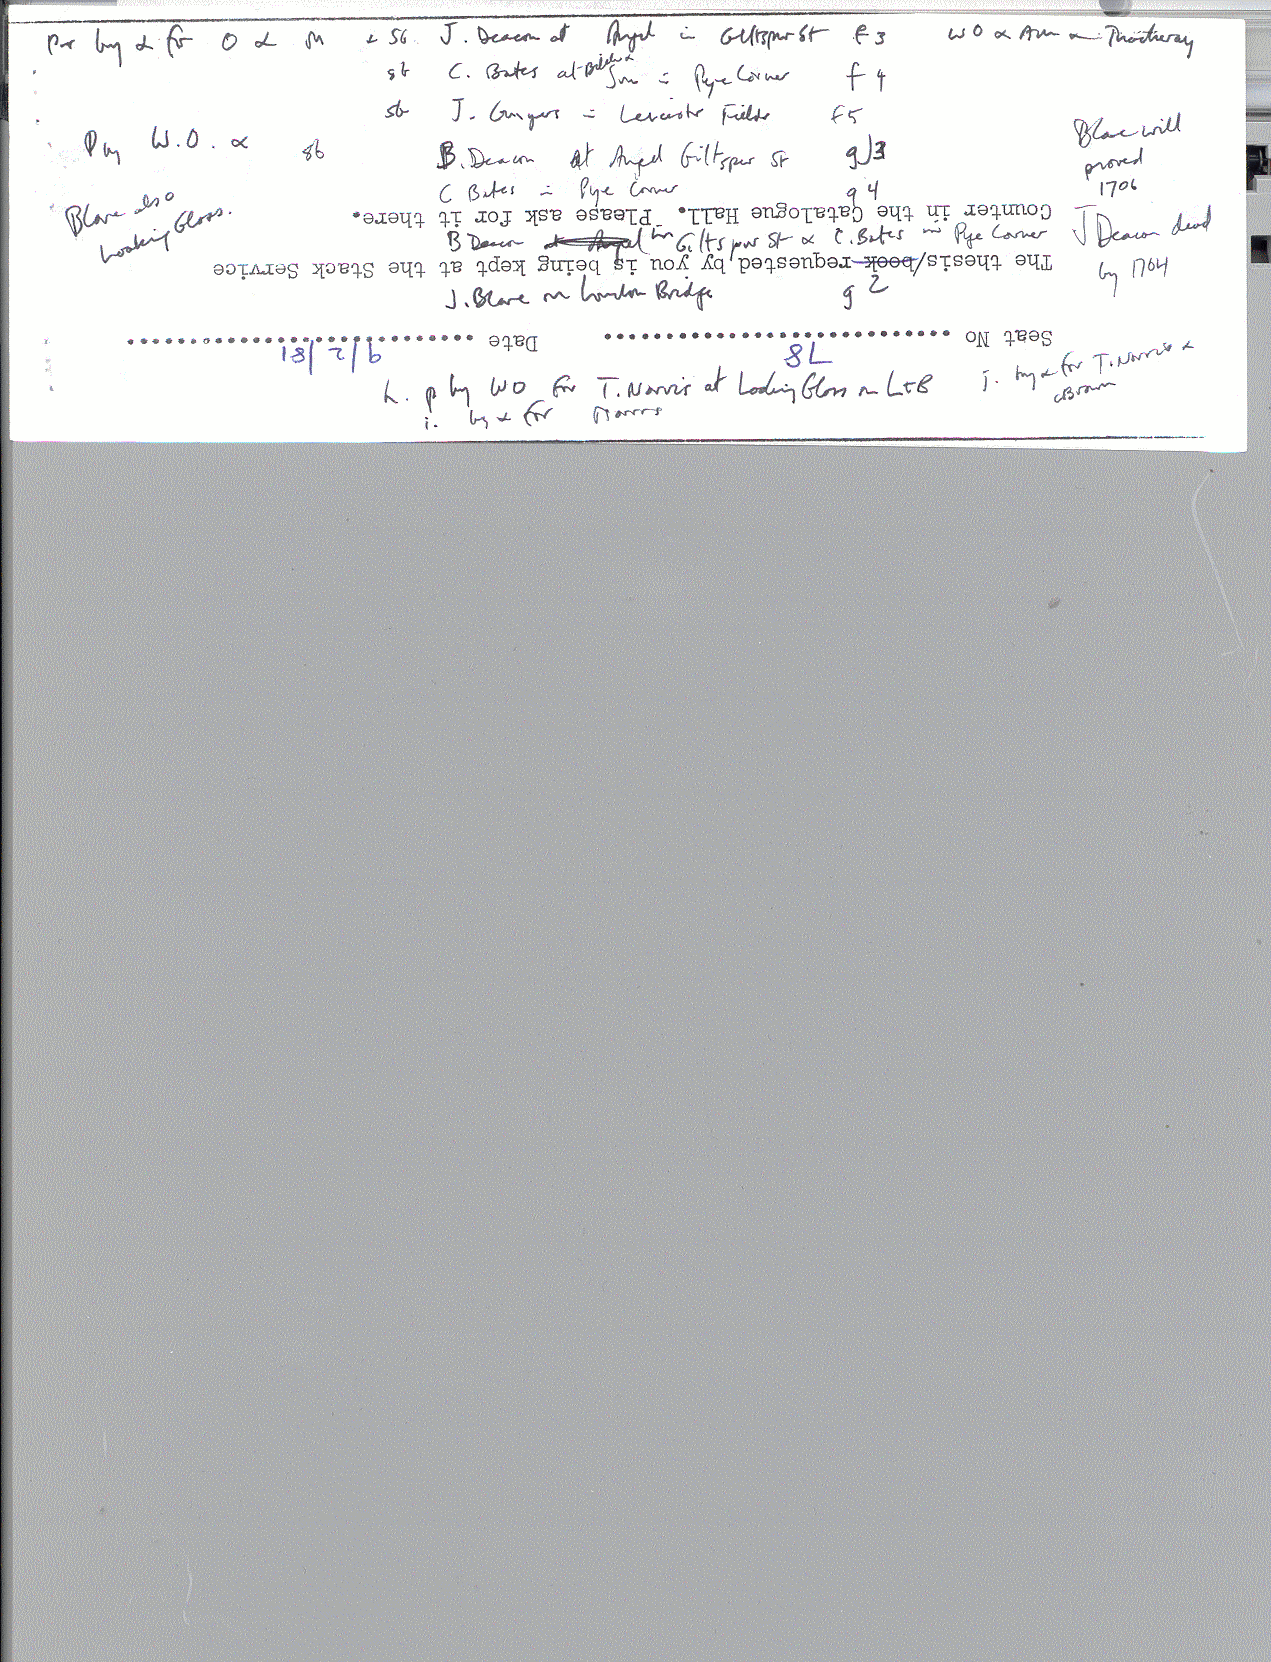 by & for O & M & sb J. Deacon at Angel in Giltspur St f3 WO & AM
sb C. Bates at Pye Corner f4
sb J. Leicester Fields f5
P by W.O. & sb B. Deacon at Angel Giltspur St g3 Blare will
proved
C Bates Pye Corner g4 1706
Blare also
Looking Glass.
Counter in the Catalogue Hall. Please ask for it there.
B Deacon at Angel in Giltspur St & C. Bates Pye Corner J Deacon dead
by 1704
The thesis/book requested by you is being kept at the Stack Service
J. Blare on London Bridge g2
Seat No 78 Date 9/2/81
h. p by WO for T. Norris at Looking Glass on L+B j. by & for T. Norris &
Brown
i. by & for Norris